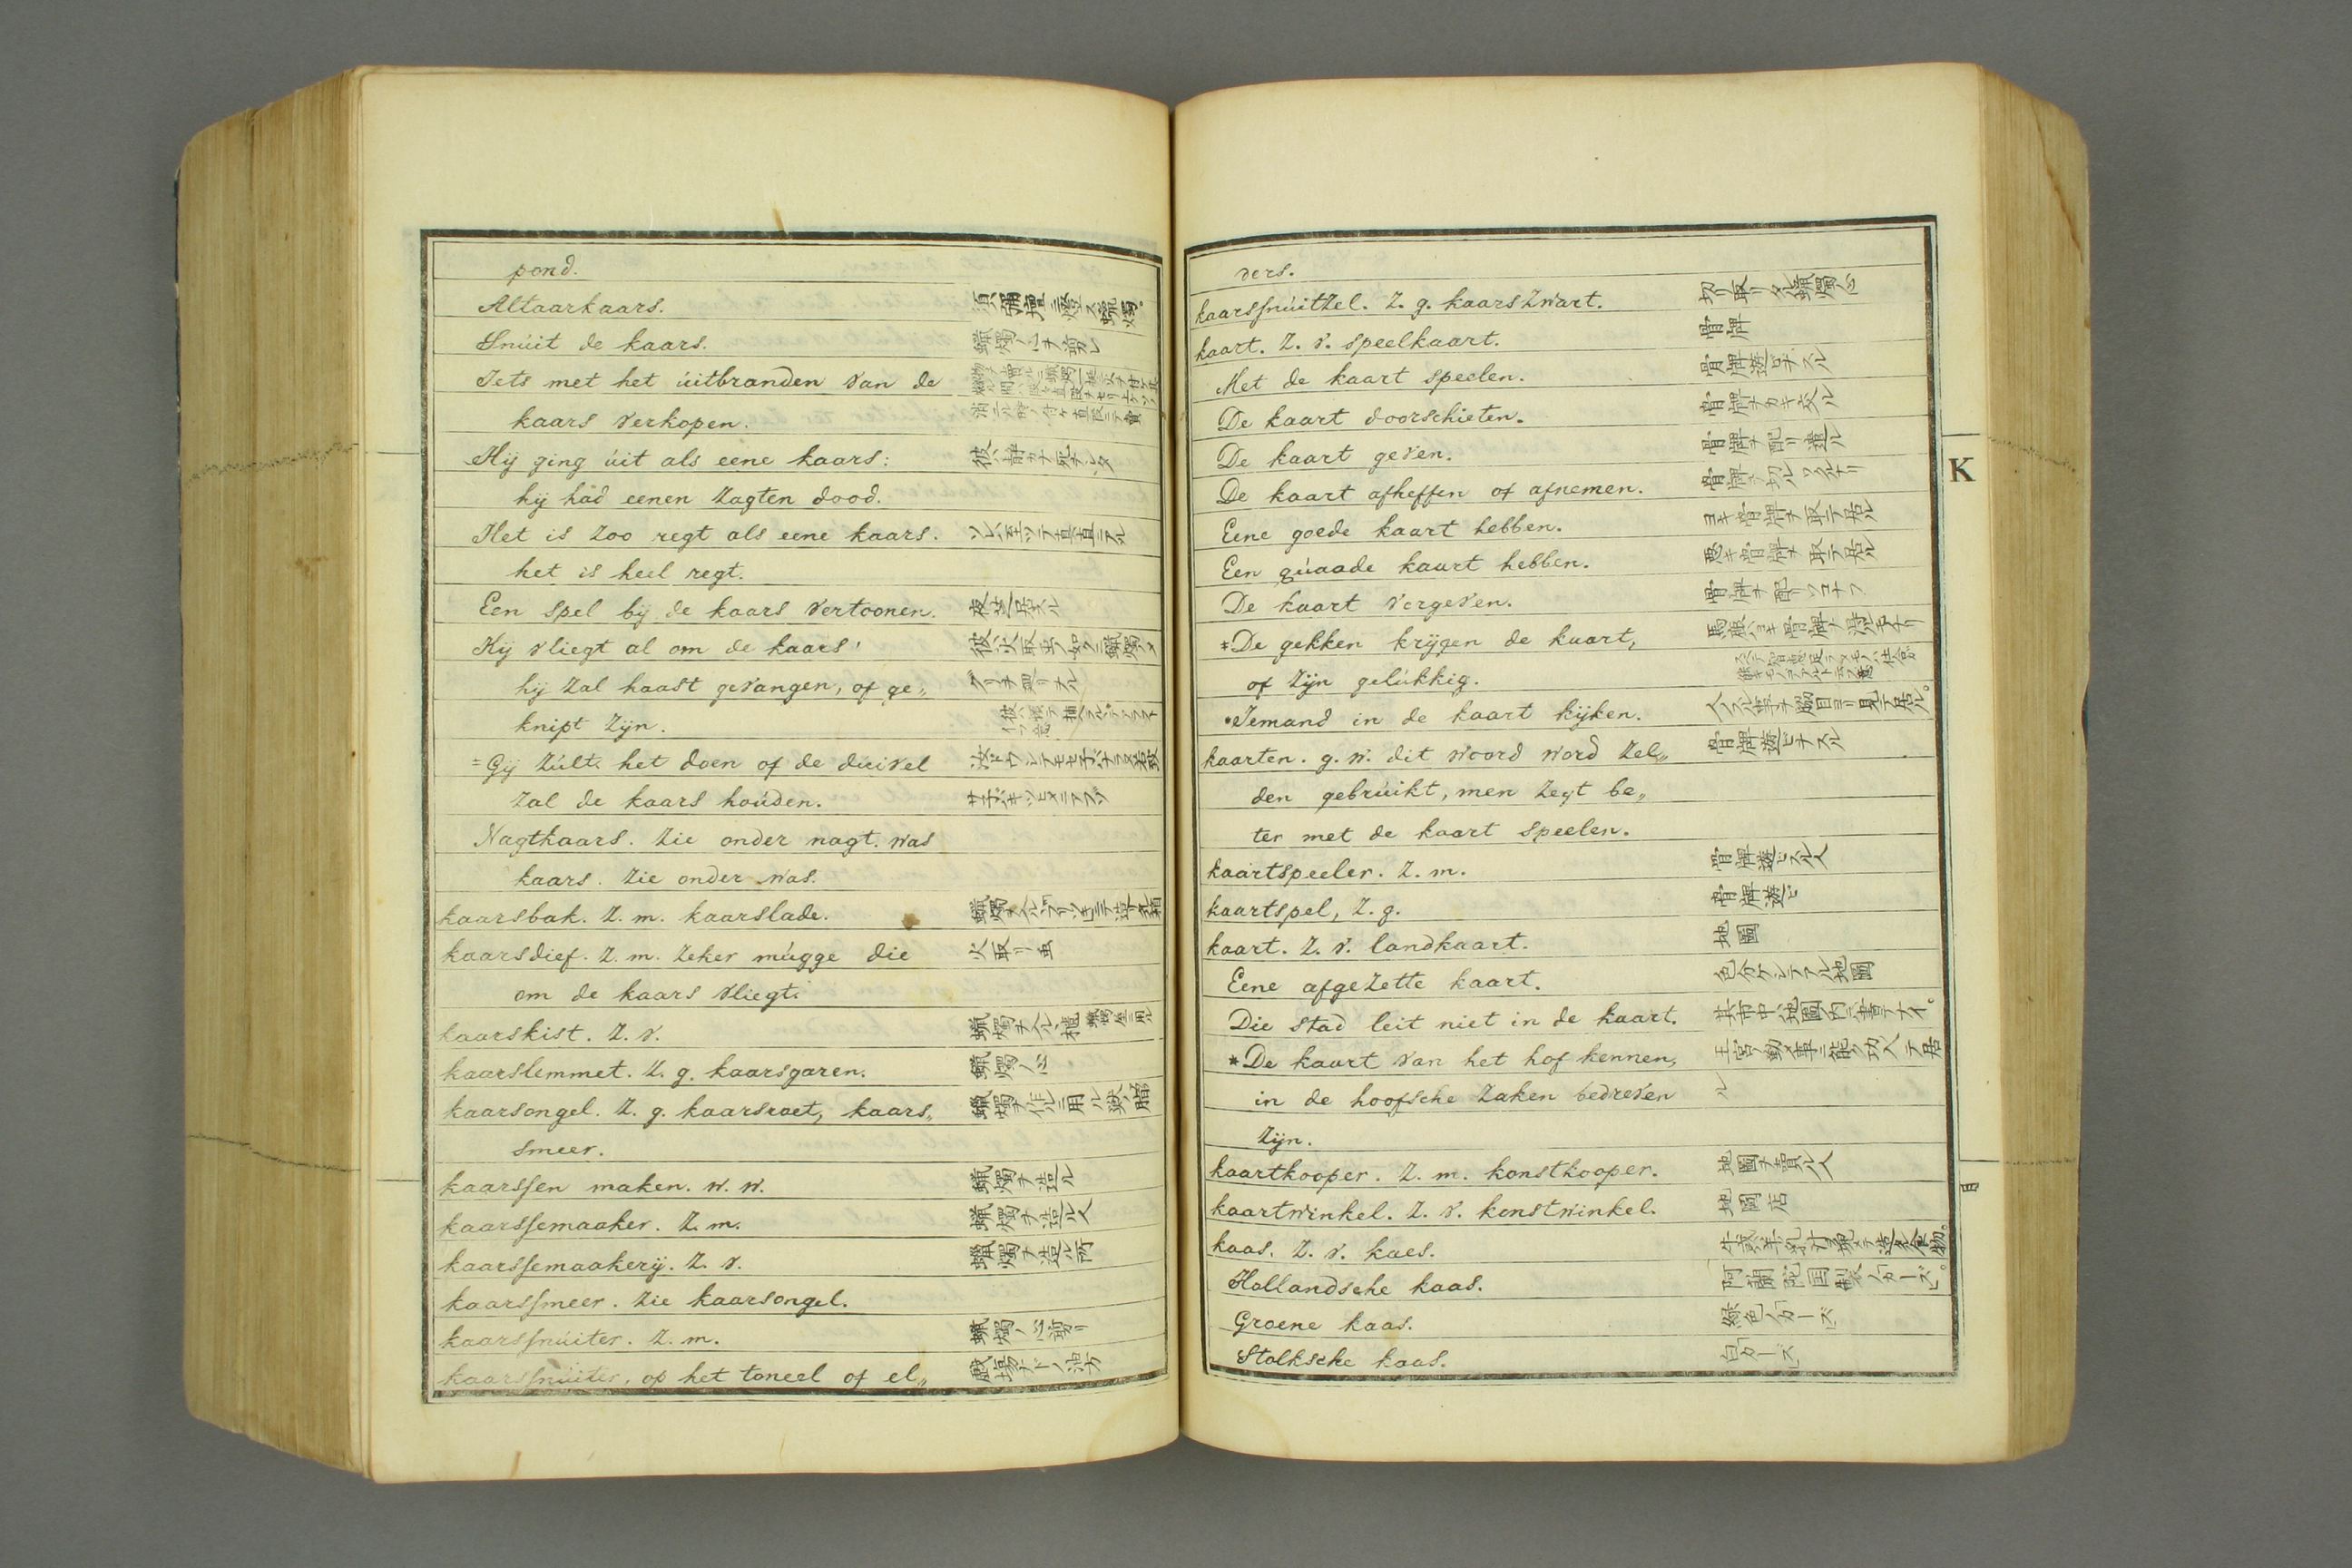 pond.
Altaarkaars.
Snúit de kaars. 蠟燭ノ心ヲ剪レ
Iets met het úitbranden van de
kaars verkopen.
Hij ging úit als eene kaars: 彼ハ静カナ死ヲシタ
hij had eenen zagten dood.
Het is zoo regt als eene kaars. ソレハ至ツテ真直ニアル
het is heel regt.
Een spel bij de kaars vertoonen. 夜芝居スル
Hij vliegt al om de kaars: 彼ハ火取虫ノ如ク蠟燭ノ
hij zal haast gevangen, of ge„ グリヲ翔リスル
knipt zijn.
=Gij zúlt het doen of de duivel
zal de kaars hoúden.
Nagtkaars. zie onder nagt. was
kaars. zie onder was.
kaarsbak. z. m. kaarslade.
kaarsdief. z. m. zeker múgge die 火取リ虫
om de kaars vliegt.
kaarskist. z. v. 蠟燭ヲ入ル櫃
kaarslemmet. z. g. kaarsgaren. 蠟燭ノ心
kaarsongel. z. g. kaarsroet, kaars„ 蠟燭ヲ作ルニ用ル獣ノ脂
smeer.
kaarssen maken. w. w. 蠟燭ヲ造ル
kaarssemaaker. z. m. 蠟燭ヲ造ル人
kaarssemaakerij. z. v. 蠟燭ヲ造ル所
kaarssmeer. zie kaarsongel.
kaarssnúiter. z. m. 蠟燭ノ心剪リ
kaarssnúiter, op het toneel of el„
ders.
kaarssnúitzel. z. g. kaarszwart. 切リ取リタル蠟燭ノ心
kaart. z. v. speelkaart. 骨牌
Met de kaart speelen. 骨牌遊ビヲスル
De kaart doorschieten. 骨牌ヲカキ交ル
De kaart geven. 骨牌ヲ配リ遣ル
De kaart afheffen of afnemen.
Eene goede kaart hebben. ヨキ骨牌ヲ取テ居ル
Een qúaade kaart hebben. 悪キ骨牌ヲ取テ居ル
De kaart vergeven. 骨牌ヲ配リソコナフ
*De gekken krijgen de kaart,
of zijn gelúkkig.
*Iemand in de kaart kijken.
kaarten. g. w. dit woord word zel„ 骨牌遊ビヲスル
den gebrúikt, men zegt be„
ter met de kaart speelen.
kaartspeeler. z. m. 骨牌遊ビスル人
kaartspel, z. g. 骨牌遊ビ
kaart. z. v. landkaart. 地圖
Eene afgezette kaart. 色分ケシテアル地圖
Die stad leit niet in de kaart.
*De kaart van het hof kennen,
in de hoofsche zaken bedreven
zijn.
kaartkooper. z. m. konstkooper. 地圖ヲ賣ル人
kaartwinkel. z. v. konstwinkel. 地圖店
kaas. z. v. kaes.
Hollandsche kaas. 阿蘭陀国製ノ「カーズ」。
Groene kaas. 緑色ノ「カーズ」
Stolksche kaas. 白「カーズ」
K